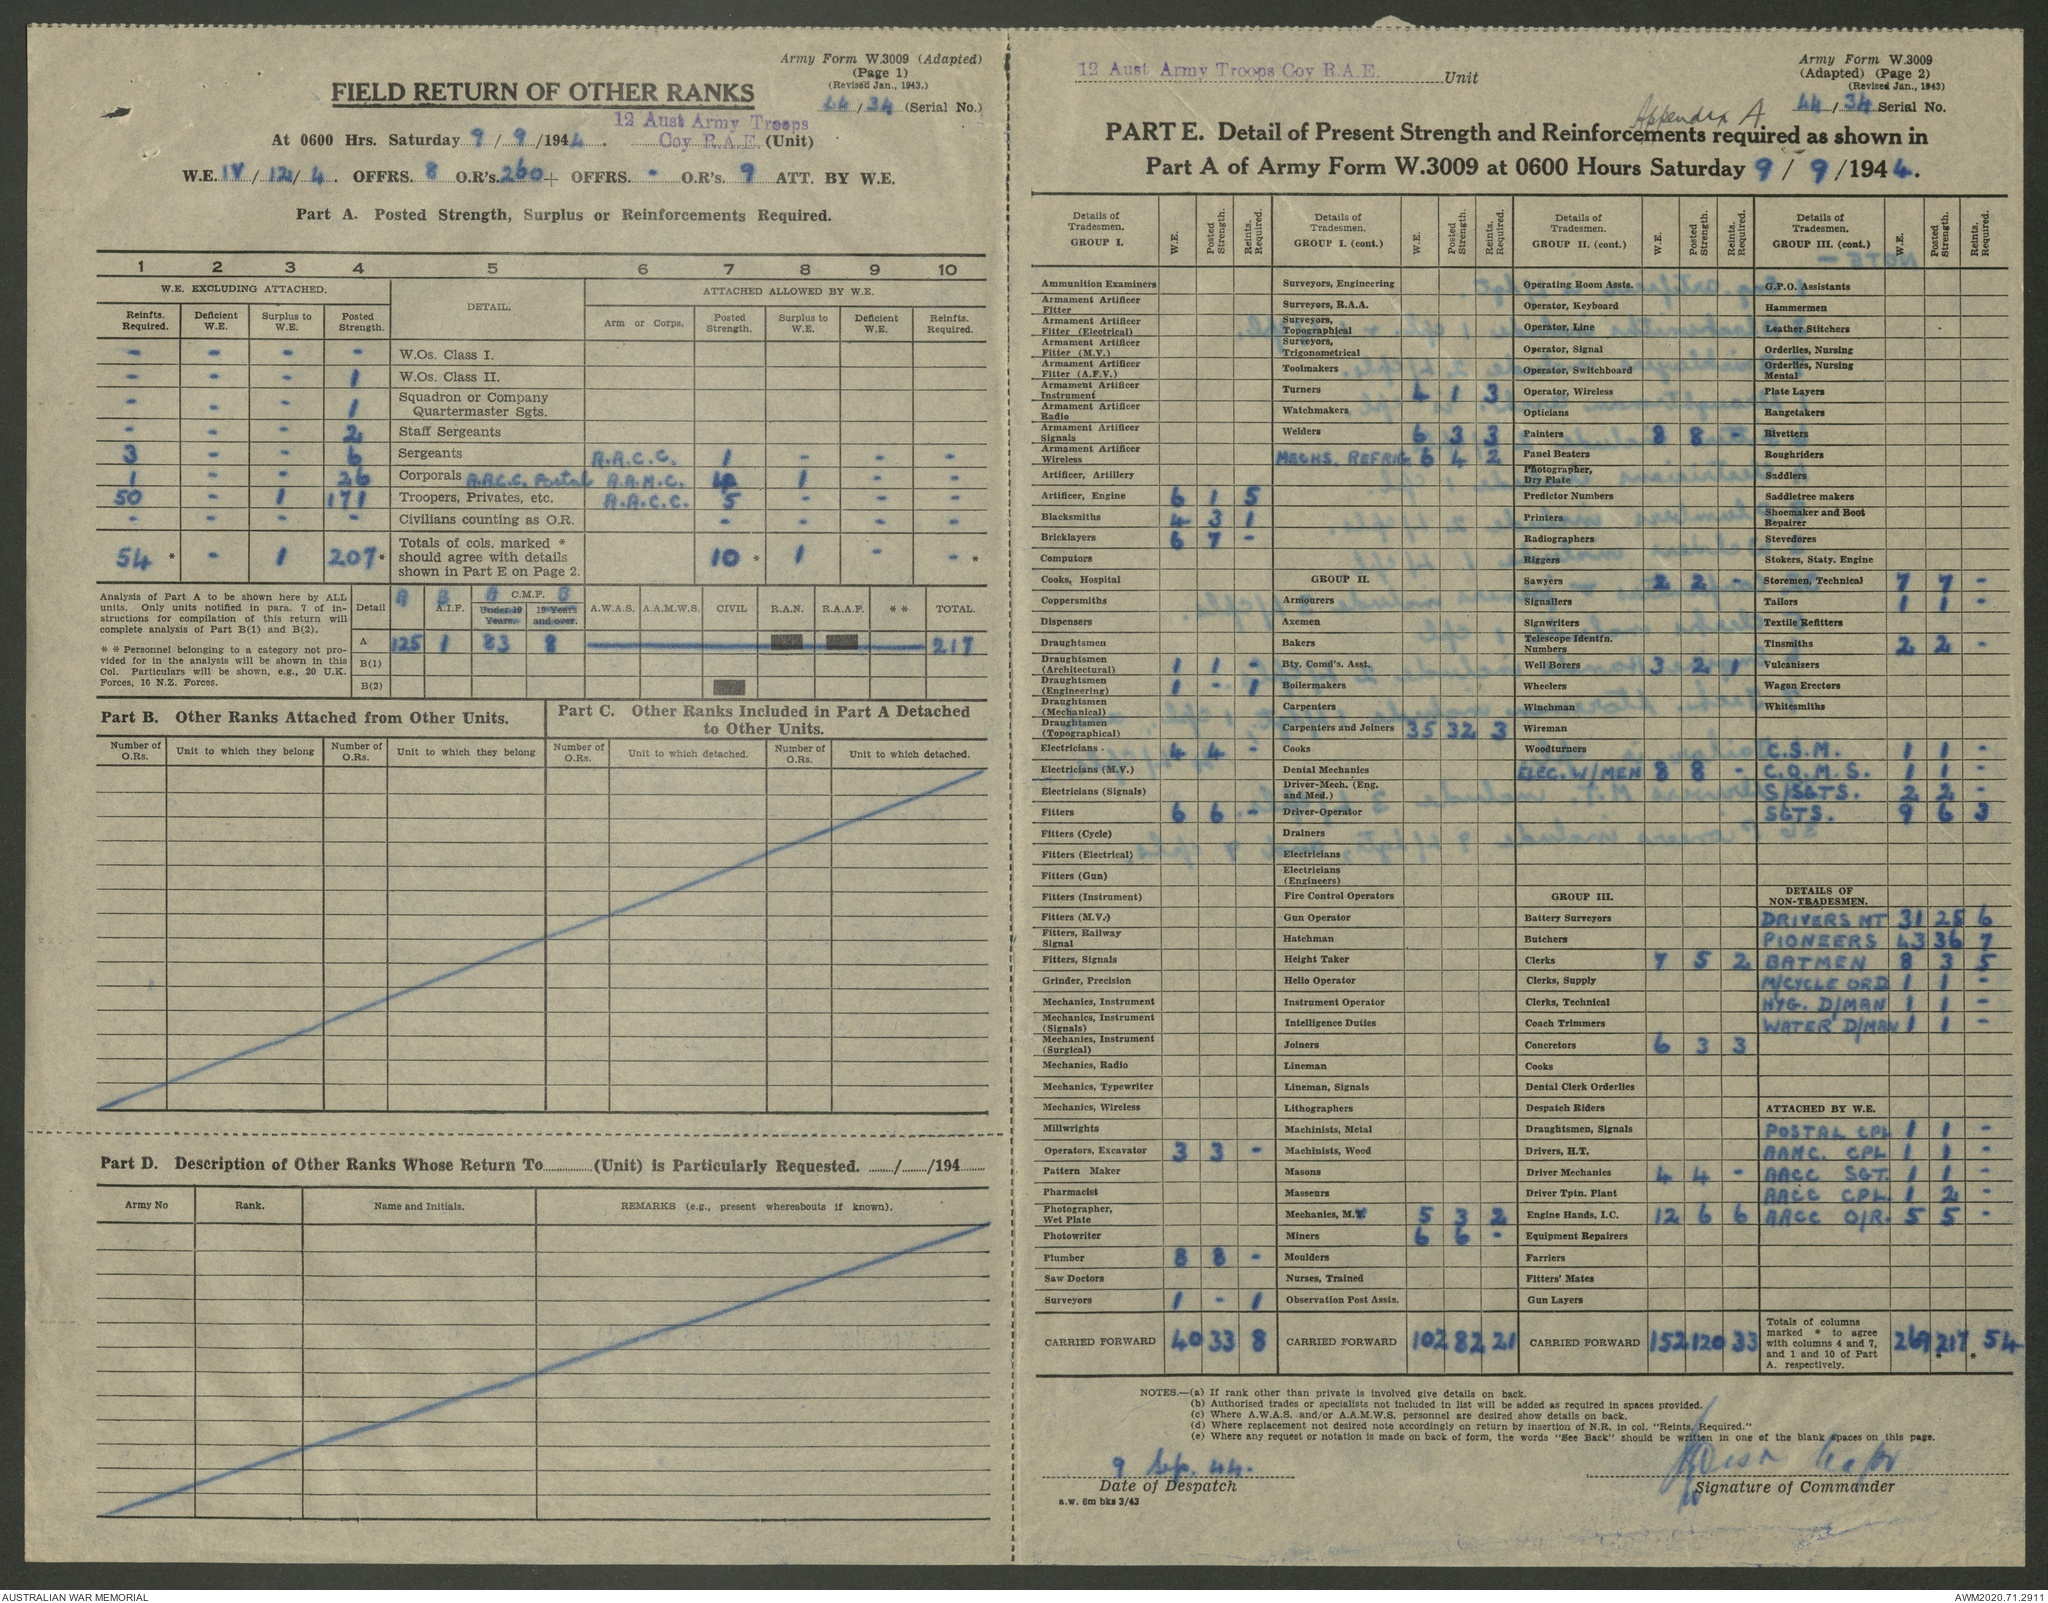 Army Form W.3009 (Adapted)
(Page 1)
(Revised Jan., 1943.)
44/34 (Serial No.)
FIELD RETURN OF OTHER RANKS
12 Aust Army Troops
Coy R.A.E. (Unit)
At 0600 Hrs. Saturday 9/9/1944.
W.E. IV/121/4. OFFRS. 8 O.R's. 260 + OFFRS. - O.R's. 9 ATT. BY W.E.
Part A. Posted Strength, Surplus or Reinforcements Required.
1 2 3 4 5 6 7 8 9 10
W.E. EXCLUDING ATTACHED. DETAIL. ATTACHED ALLOWED BY W.E.
Reinfts. Required. Deficient W.E. Surplus to W.E. Posted Strength. Arm or Corps. Posted Strength. Surplus to W.E. Deficient W.E. Reinfts. Required.
- - - - W.Os. Class I.
- - - 1 W.Os. Class II.
- - - 1 Squadron or Company Quartermaster Sgts.
- - - 2 Staff Sergeants
3 - - 6 Sergeants A.A.C.C. 1 - - -
1 - - 26 Corporals A.A.C.C. Postal A.A.M.C. 4 1 - -
50 - 1 171 Troopers, Privates, etc. A.A.C.C. 5 - - -
- - - - Civilians counting as O.R. - - - -
54 * - 1 207 * Totals of cols. marked * should agree with details shown in Part E on Page 2. 10 * 1 - - *
Analysis of Part A to be shown here by ALL
units. Only units notified in para. 7 of in-
structions for compilation of this return will
complete analysis of Part B(1) and B(2).
* * Personnel belonging to a category not pro-
vided for in the analysis will be shown in this
Col. Particulars will be shown, e.g., 20 U.K.
Forces, 10 N.Z. Forces.
Detail A B A.I.F. A C.M.F. B Under 19 Years. 19 Years and over. A.W.A.S. A.A.M.W.S. CIVIL R.A.N. R.A.A.F. * * TOTAL.
A 125 1 83 8 217
B(1)
B(2)
Part B. Other Ranks Attached from Other Units.
Number of O.Rs. Unit to which they belong Number of O.Rs. Unit to which they belong
Part C. Other Ranks Included in Part A Detached
to Other Units.
Number of O.Rs. Unit to which detached. Number of O.Rs. Unit to which detached.
Part D. Description of Other Ranks Whose Return To............(Unit) is Particularly Requested. ....../....../194......
Army No Rank. Name and Initials. REMARKS (e.g., present whereabouts if known).
12 Aust Army Troops Coy R.A.E. Unit
Army Form W.3009
(Adapted) (Page 2)
(Revised Jan., 1943)
44/34 Serial No.
Appendix A
PART E. Detail of Present Strength and Reinforcements required as shown in
Part A of Army Form W.3009 at 0600 Hours Saturday 9/9/1944.
Details of Tradesmen. GROUP I. W.E. Posted Strength. Reints. Required.
Ammunition Examiners
Armament Artificer Fitter
Armament Artificer Fitter (Electrical)
Armament Artificer Fitter (M.V.)
Armament Artificer Fitter (A.F.V.)
Armament Artificer Instrument
Armament Artificer Radio
Armament Artificer Signals
Armament Artificer Wireless
Artificer, Artillery
Artificer, Engine 6 1 5
Blacksmiths 4 3 1
Bricklayers 6 7 -
Computors
Cooks, Hospital
Coppersmiths
Dispensers
Draughtsmen
Draughtsmen (Architectural) 1 1 -
Draughtsmen (Engineering) 1 - 1
Draughtsmen (Mechanical)
Draughtsmen (Topographical)
Electricians 4 4 -
Electricians (M.V.)
Electricians (Signals)
Fitters 6 6 -
Fitters (Cycle)
Fitters (Electrical)
Fitters (Gun)
Fitters (Instrument)
Fitters (M.V.)
Fitters, Railway Signal
Fitters, Signals
Grinder, Precision
Mechanics, Instrument
Mechanics, Instrument (Signals)
Mechanics, Instrument (Surgical)
Mechanics, Radio
Mechanics, Typewriter
Mechanics, Wireless
Millwrights
Operators, Excavator 3 3 -
Pattern Maker
Pharmacist
Photographer, Wet Plate
Photowriter
Plumber 8 8 -
Saw Doctors
Surveyors 1 - 1
CARRIED FORWARD 40 33 8
Details of Tradesmen. GROUP I. (cont.) W.E. Posted Strength. Reints. Required.
Surveyors, Engineering
Surveyors, R.A.A.
Surveyors, Topographical
Surveyors, Trigonometrical
Toolmakers
Turners 4 1 3
Watchmakers
Welders 6 3 3
MECHS. REFRIG 6 4 2
GROUP II.
Armourers
Axemen
Bakers
Bty. Comd's. Asst.
Boilermakers
Carpenters
Carpenters and Joiners 35 32 3
Cooks
Dental Mechanics
Driver-Mech. (Eng. and Med.)
Driver-Operator
Drainers
Electricians
Electricians (Engineers)
Fire Control Operators
Gun Operator
Hatchman
Height Taker
Helio Operator
Instrument Operator
Intelligence Duties
Joiners
Lineman
Lineman, Signals
Lithographers
Machinists, Metal
Machinists, Wood
Masons
Masseurs
Mechanics, M.T. 5 3 2
Miners 6 6 -
Moulders
Nurses, Trained
Observation Post Assts.
CARRIED FORWARD 102 82 21
Details of Tradesmen. GROUP II. (cont.) W.E. Posted Strength. Reints. Required.
Operating Room Assts.
Operator, Keyboard
Operator, Line
Operator, Signal
Operator, Switchboard
Operator, Wireless
Opticians
Painters 8 8 -
Panel Beaters
Photographer, Dry Plate
Predictor Numbers
Printers
Radiographers
Riggers
Sawyers 2 2 -
Signallers
Signwriters
Telescope Identfn. Numbers
Well Borers 3 2 1
Wheelers
Winchman
Wireman
Woodturners
ELEC. W/MEN 8 8 -
GROUP III.
Battery Surveyors
Butchers
Clerks 7 5 2
Clerks, Supply
Clerks, Technical
Coach Trimmers
Concretors 6 3 3
Cooks
Dental Clerk Orderlies
Despatch Riders
Draughtsmen, Signals
Drivers, H.T.
Driver Mechanics 4 4 -
Driver Tptn. Plant
Engine Hands, I.C. 12 6 6
Equipment Repairers
Farriers
Fitters' Mates
Gun Layers
CARRIED FORWARD 152 120 33
Details of Tradesmen. GROUP III. (cont.) W.E. Posted Strength. Reints. Required.
G.P.O. Assistants
Hammermen
Leather Stitchers
Orderlies, Nursing
Orderlies, Nursing Mental
Plate Layers
Rangetakers
Rivetters
Roughriders
Saddlers
Saddletree makers
Shoemaker and Boot Repairer
Stevedores
Stokers, Staty. Engine
Storemen, Technical 7 7 -
Tailors 1 1 -
Textile Refitters
Tinsmiths 2 2 -
Vulcanizers
Wagon Erectors
Whitesmiths
C.S.M. 1 1 -
C.Q.M.S. 1 1 -
S/SGTS. 2 2 -
SGTS. 9 6 3
DETAILS OF NON-TRADESMEN.
DRIVERS MT 31 25 6
PIONEERS 43 36 7
BATMEN 8 3 5
M/CYCLE ORD 1 1 -
HYG. D/MAN 1 1 -
WATER D/MAN 1 1 -
ATTACHED BY W.E.
POSTAL CPL 1 1 -
AAMC. CPL 1 1 -
AACC SGT. 1 1 -
AACC CPL. 1 2 -
AACC O/R. 5 5 -
Totals of columns marked * to agree with columns 4 and 7, and 1 and 10 of Part A. respectively. 269 217 * 54 *
NOTES.—(a) If rank other than private is involved give details on back.
(b) Authorised trades or specialists not included in list will be added as required in spaces provided.
(c) Where A.W.A.S. and/or A.A.M.W.S. personnel are desired show details on back.
(d) Where replacement not desired note accordingly on return by insertion of N.R. in col. "Reints. Required."
(e) Where any request or notation is made on back of form, the words "See Back" should be written in one of the blank spaces on this page.
9 Sep. 44.
Date of Despatch
Major
Signature of Commander
a.w. 6m bks 3/43
AUSTRALIAN WAR MEMORIAL
AWM2020.71.2911